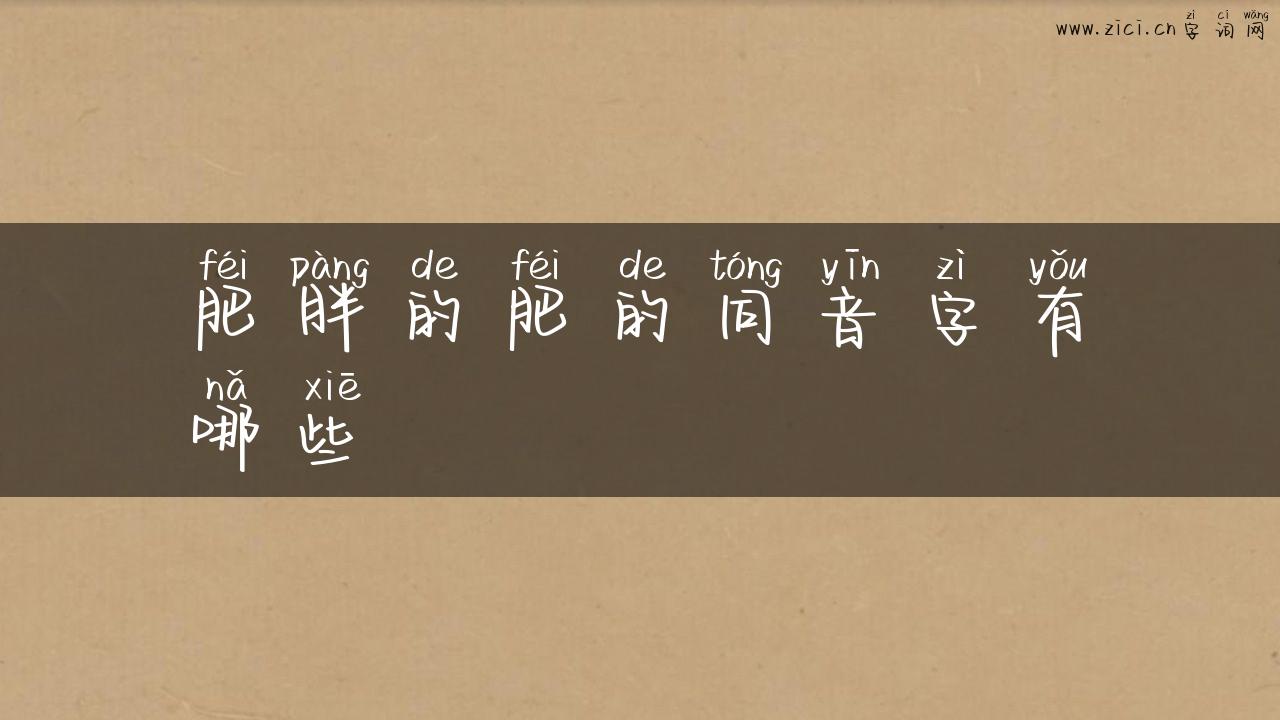 zì cí wǎng
www.zici.cn 字词网
féi pàng de féi de tóng yīn zì yǒu
肥胖的肥的同音字有
nǎ xiē
哪些